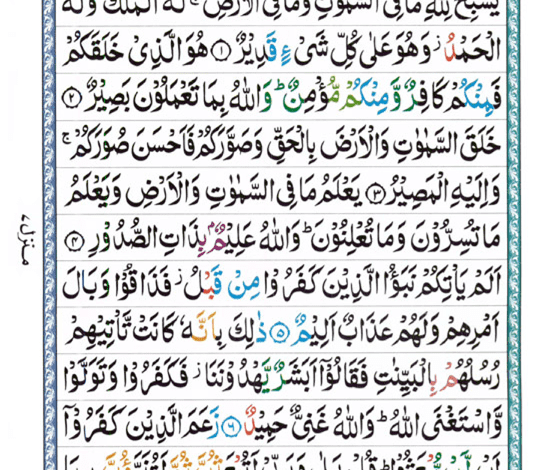 يُسَبِّحُ لِلّٰهِ مَا فِى السَّمٰوٰتِ وَمَا فِى الْاَرْضِ ۚ لَهُ الْمُلْكُ وَلَهُ
الْحَمْدُ ؗ وَهُوَ عَلٰى كُلِّ شَىْءٍ قَدِيْرٌ ﴿۱﴾ هُوَ الَّذِىْ خَلَقَكُمْ
فَمِنْكُمْ كَافِرٌ وَّمِنْكُمْ مُّؤْمِنٌ ؕ وَاللّٰهُ بِمَا تَعْمَلُوْنَ بَصِيْرٌ ﴿۲﴾
خَلَقَ السَّمٰوٰتِ وَالْاَرْضَ بِالْحَقِّ وَصَوَّرَكُمْ فَاَحْسَنَ صُوَرَكُمْ ۚ
وَاِلَيْهِ الْمَصِيْرُ ﴿۳﴾ يَعْلَمُ مَا فِى السَّمٰوٰتِ وَالْاَرْضِ وَيَعْلَمُ
مَا تُسِرُّوْنَ وَمَا تُعْلِنُوْنَ ؕ وَاللّٰهُ عَلِيْمٌۢ بِذَاتِ الصُّدُوْرِ ﴿۴﴾
اَلَمْ يَاْتِكُمْ نَبَؤُا الَّذِيْنَ كَفَرُوْا مِنْ قَبْلُ ؗ فَذَاقُوْا وَبَالَ
اَمْرِهِمْ وَلَهُمْ عَذَابٌ اَلِيْمٌ ﴿۵﴾ ذٰلِكَ بِاَنَّهٗ كَانَتْ تَّاْتِيْهِمْ
رُسُلُهُمْ بِالْبَيِّنٰتِ فَقَالُوْۤا اَبَشَرٌ يَّهْدُوْنَنَا ؗ فَكَفَرُوْا وَتَوَلَّوْا
وَّاسْتَغْنَى اللّٰهُ ؕ وَاللّٰهُ غَنِىٌّ حَمِيْدٌ ﴿۶﴾ زَعَمَ الَّذِيْنَ كَفَرُوْۤا
منزل ۷